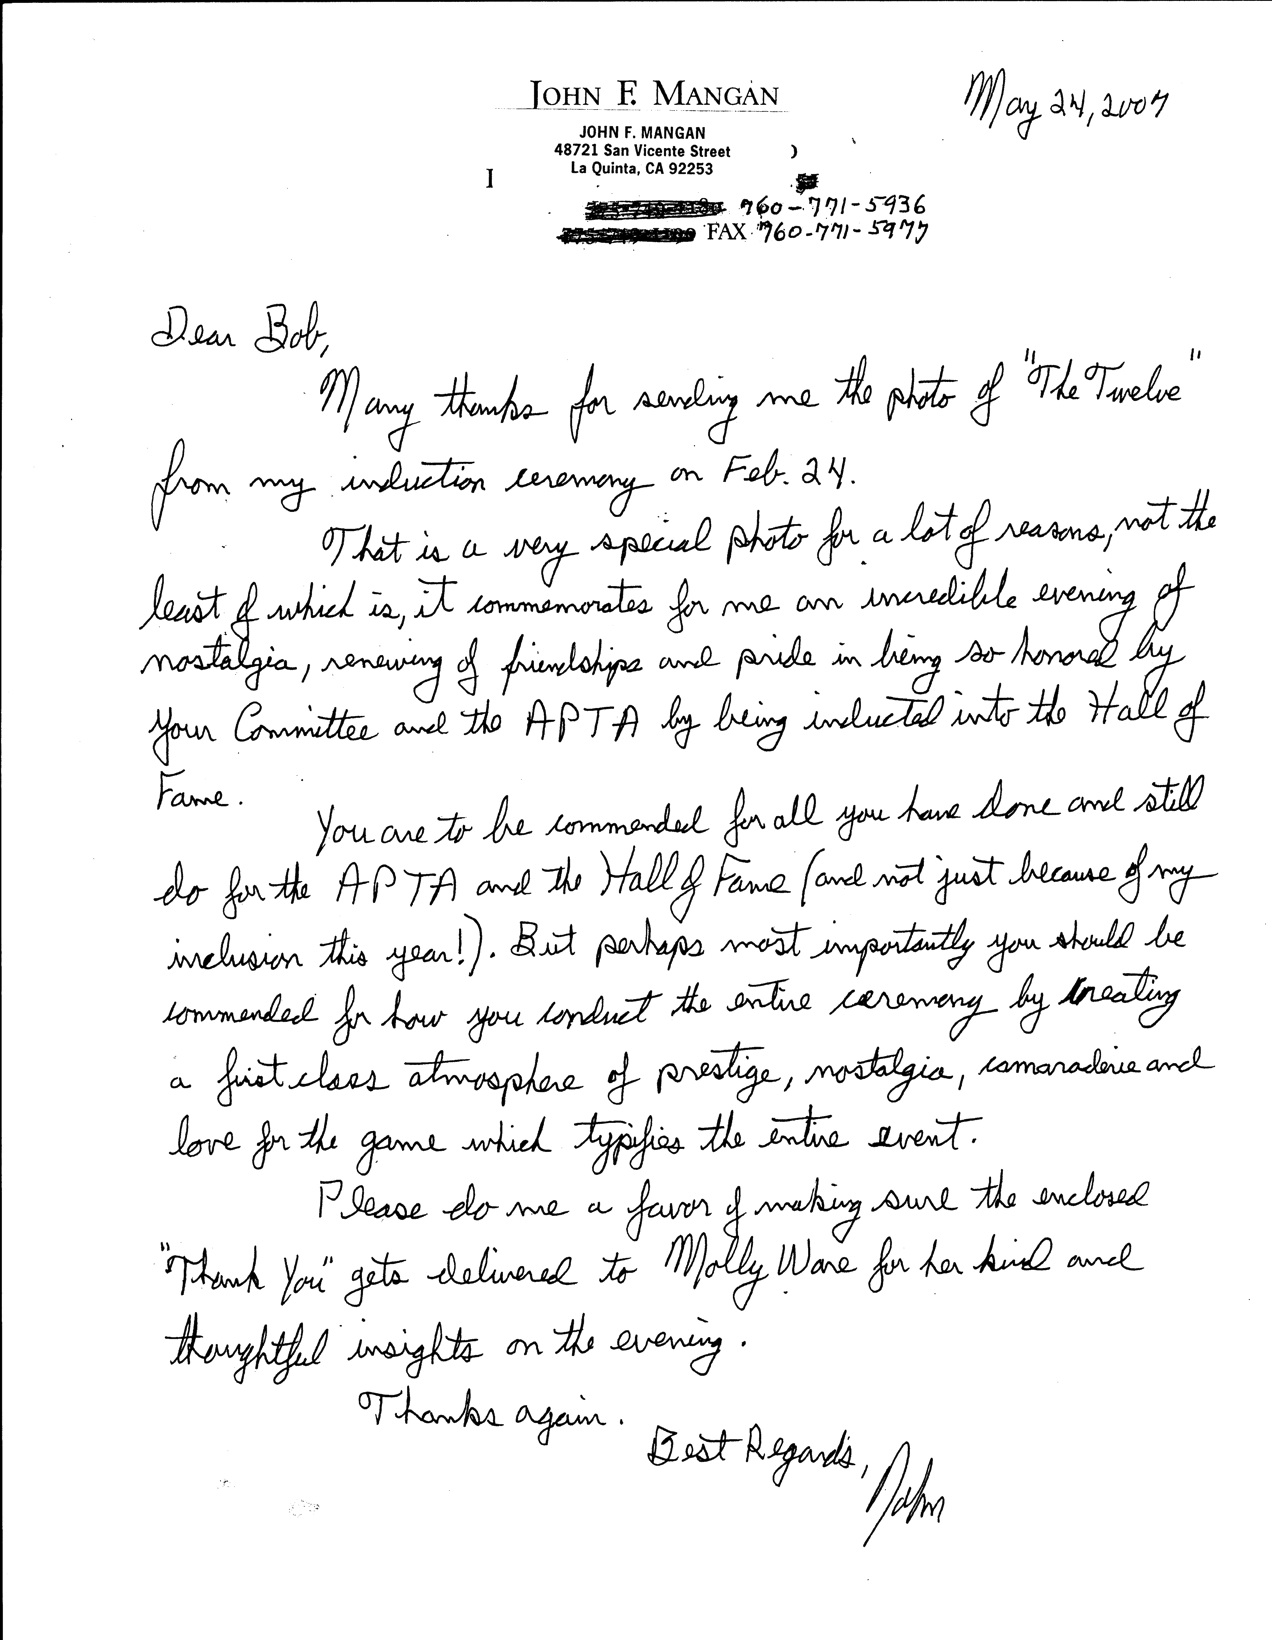 JOHN F. MANGAN
May 24, 2007
JOHN F. MANGAN
48721 San Vicente Street
)
La Quinta, CA 92253
I
760-771-5936
FAX 760-771-5977
Dear Bob,
Many thanks for sending me the photo of "The Twelve"
from my induction ceremony on Feb. 24.
That is a very special photo for a lot of reasons, not the
least of which is, it commemorates for me an incredible evening of
nostalgia, renewing of friendships and pride in being so honored by
your Committee and the APTA by being inducted into the Hall of
Fame.
You are to be commended for all you have done and still
do for the APTA and the Hall of Fame (and not just because of my
inclusion this year!). But perhaps most importantly you should be
commended for how you conduct the entire ceremony by creating
a first class atmosphere of prestige, nostalgia, camaraderie and
love for the game which typifies the entire event.
Please do me a favor of making sure the enclosed
"Thank You" gets delivered to Molly Ware for her kind and
thoughtful insights on the evening.
Thanks again.
Best Regards,
John